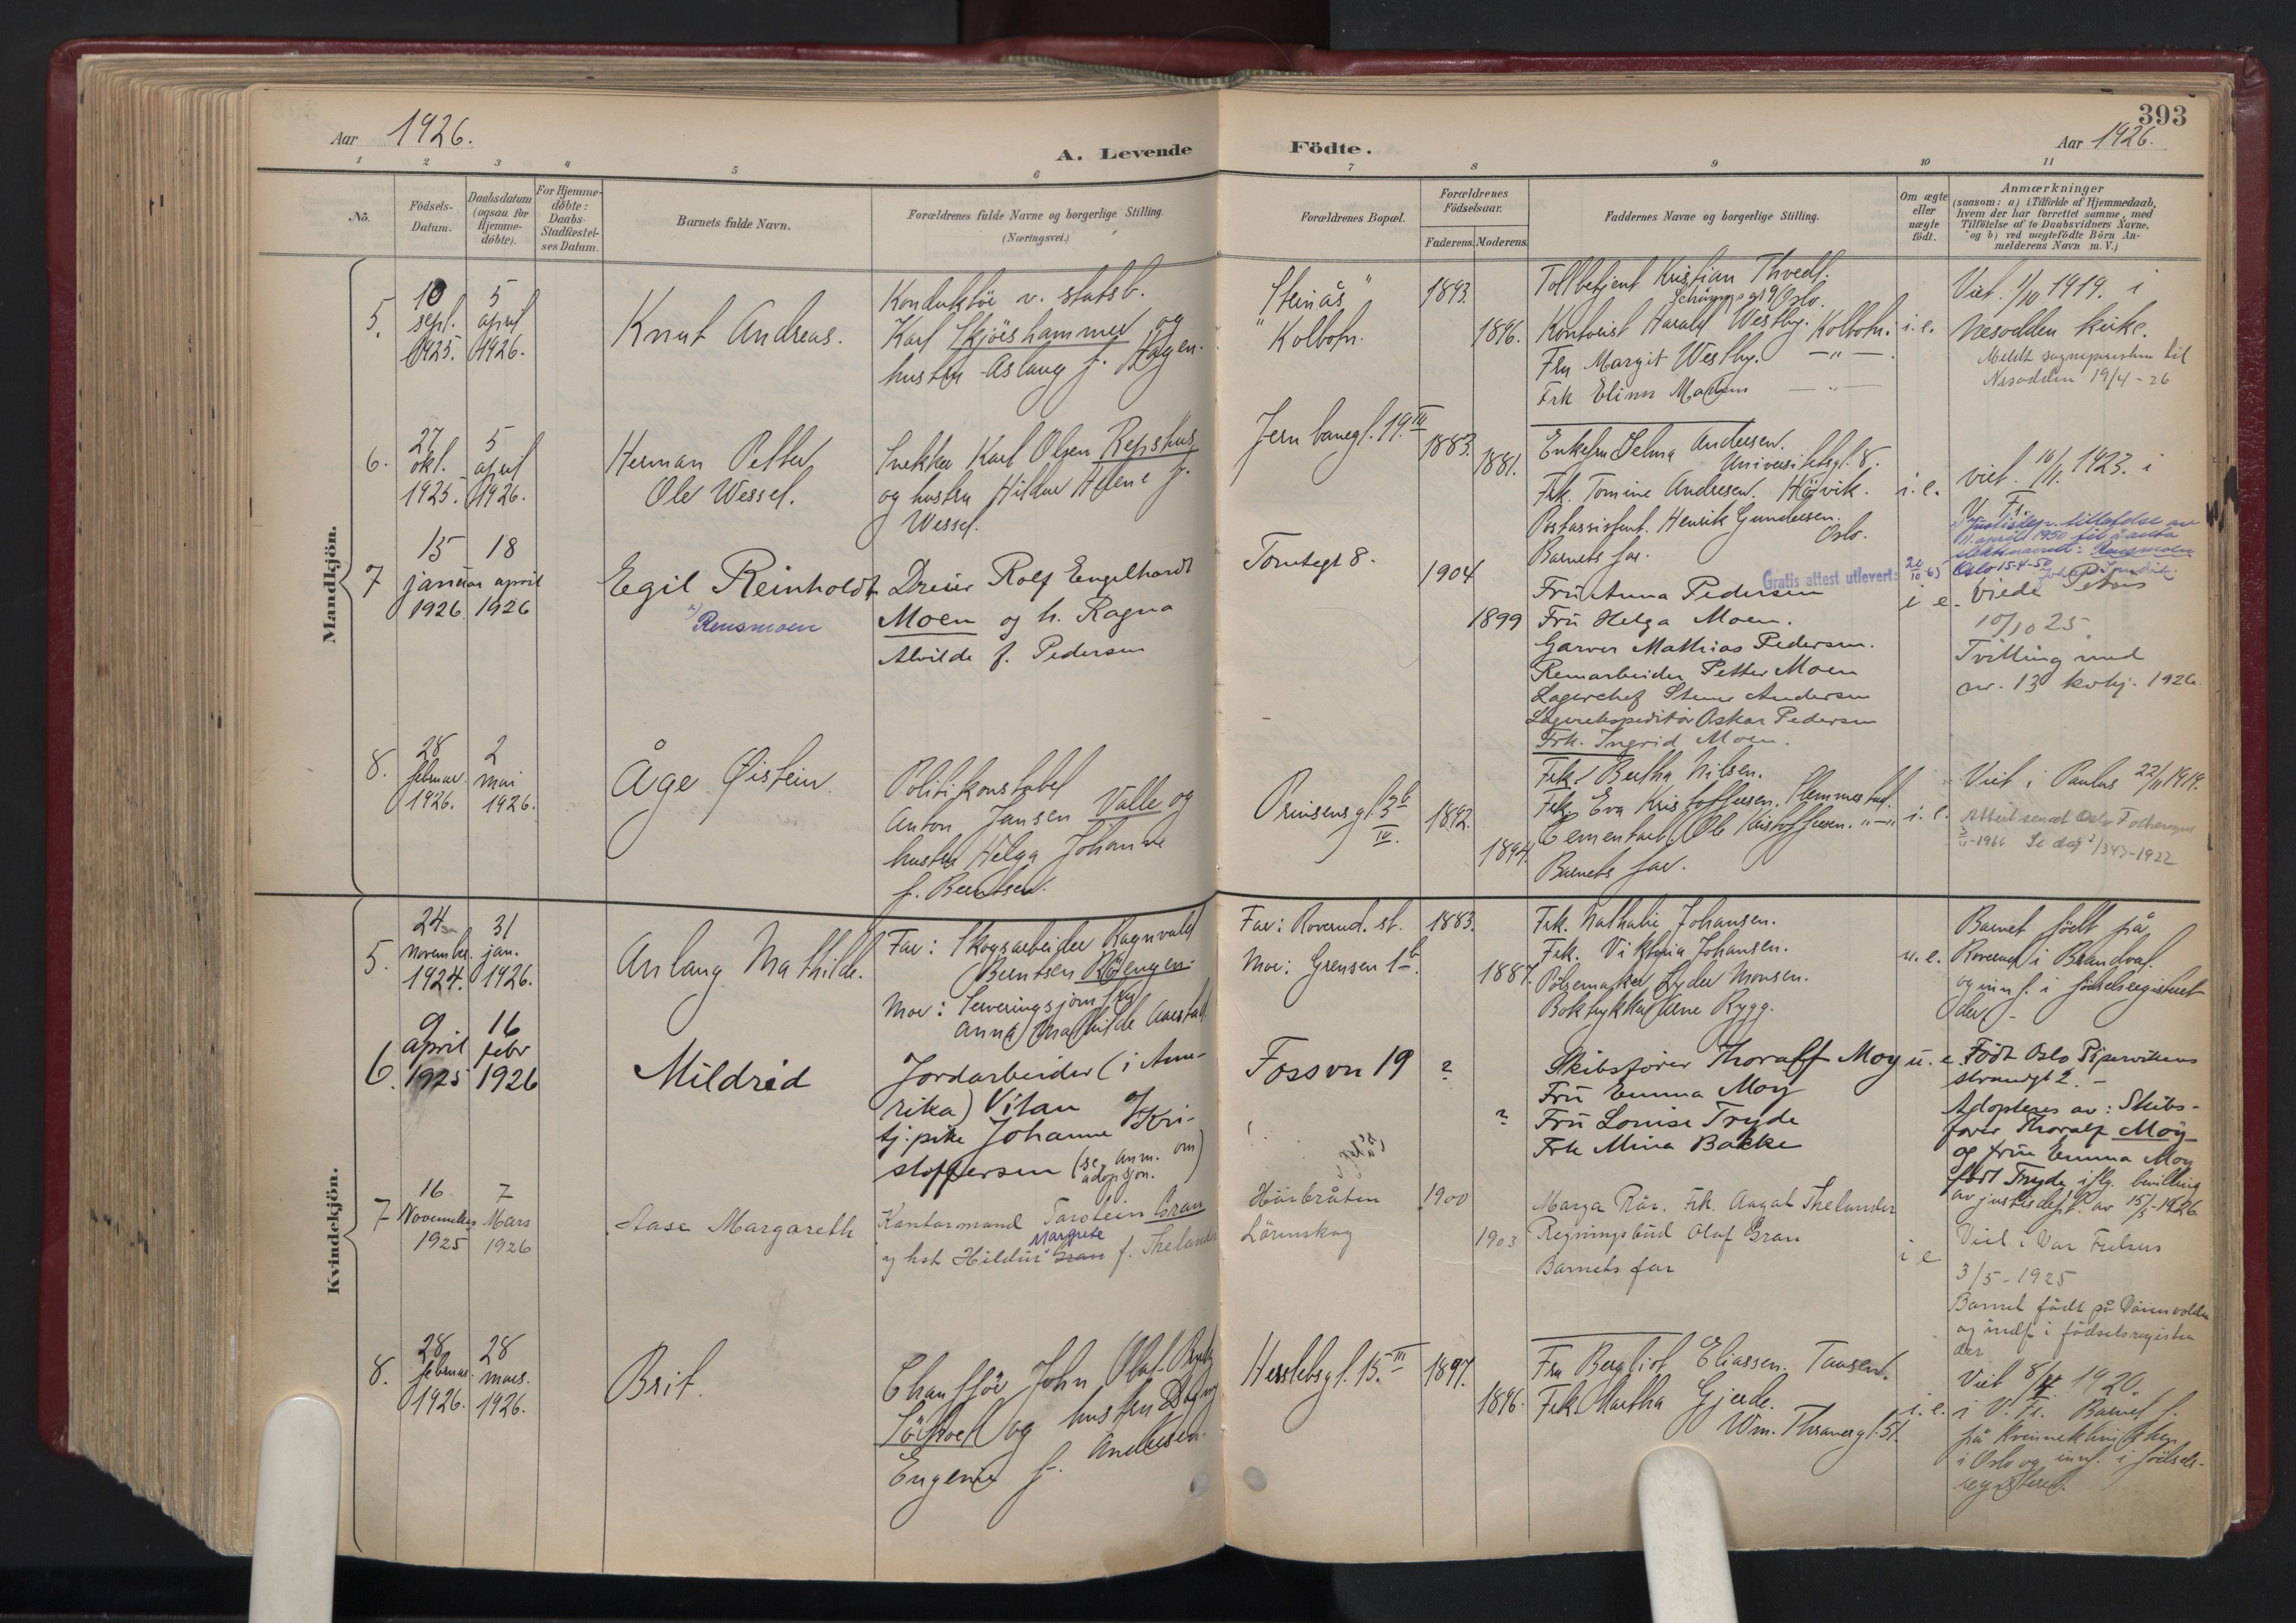 393
Aar 1926.
A. Levende Födte.
Aar 1926.
1 2 3 4 5 6 7 8 9 10 11
No.
Födsels-
Datum.
Daabsdatum
(ogsaa for
Hjemme-
döbte).
For Hjemme-
döbte:
Daabs-
Stadfæstel-
ses Datum.
Barnets fulde Navn.
Forældrenes fulde Navne og borgerlige Stilling.
(Næringsvei.)
Forældrenes Bopæl.
Forældrenes
Födselsaar.
Faderens. Moderens.
Faddernes Navne og borgerlige Stilling.
Om ægte
eller
uægte
födt.
Anmærkninger
(saasom: a) i Tilfælde af Hjemmedaab,
hvem der har forrettet samme, med
Tilföielse af to Daabsvidners Navne,
og b) ved uægtefödte Börn An-
melderens Navn m. V.)
Mandkjön.
5.
10
sept.
1925.
5
april
1926.
Knut Andreas.
Konduktör v. statsb.
Karl Skjöeshammer og
hustru Aslaug f. Hagen.
"Steinås"
Kolbotn.
1893.
1896.
Tollbetjent Kristian Thvedt.
Schwppsgt 9 Oslo.
Kontorist Harald Westby. Kolbotn.
Fru Margit Westby. — " —
Frk Elinn Madsen — " —
i. e.
Viet. 1/10 1919. i
Nesodden kirke.
Meldt sognepresten til
Nesodden 19/4 - 26
6.
27
okt.
1925.
5
april
1926.
Herman Petter
Ole Wessel.
Snekker Karl Olsen Repshus
og hustru Hildur Helene f.
Wessel.
Jernbanegt. 19. III
1883.
1881.
Enkefru Selma Andresen.
Universitetsgt. 8.
Frk. Tomine Andresen. Hövik.
Postassistent. Henrik Gundersen.
Oslo.
Barnets far.
i. e.
viet. 10/11. 1923. i
V. Fr.
7
15
januar
1926
18
april
1926
Egil Reinholdt
x) Rensmoen
Dreier Rolf Engelhardt
Moen og h. Ragna
Alvilde f. Pedersen
Tomtegt 8.
1904
1899
Gratis attest utlevert: 20/10-65
Fru Anna Pedersen
Fru Helga Moen.
Garver Mathias Pedersen.
Remarbeider Petter Moen
Lagerchef Stener Andersen
Lagerekspeditör Oskar Pedersen
Frk. Ingrid Moen.
i e.
x) Justisdep. tillatelse av
11. april 1950 til å anta
slektsnavnet: Rensmoen
Oslo 15-4-50
Viede Petrus
10/10 25.
Tvilling med
nr. 13 kvkj. 1926.
8.
28
februar.
1926.
2
mai
1926.
Åge Øistein.
Politikonstabel
Anton Jansen Valle og
hustru Helga Johanne
f. Berntsen.
Prinsensgt. 3 b
IV.
1892.
1894.
Frk. Bertha Nilsen.
Frk. Eva Kristoffersen. Slemmestad.
Cementarb. Ole Kristoffersen. " — "
Barnets far.
i. e.
Viet i Paulus 22/11 1919.
Attest sendt Oslo Folkeregister
3/11-1966 Se dag 2/343-1922
Kvindekjön.
5.
24
november.
1924.
31
jan.
1926.
Anlaug Mathilde.
Far: Skogsarbeider Ragnvald
Berntsen Röengen.
Mor: Serveringsjomfru
Anna Mathilde Aarstad.
Far: Roverud. st.
Mor: Grensen 1 b.
1883.
1887.
Frk. Nathalie Johansen.
Frk. Viktoria Johansen.
Pölsemaker Peder Monsen.
Boktrykker Arne Rygg.
u. e.
Barnet födt på
Roverud i Brandval.
og innf. i födselsregisteret
der.
6.
9
april
1925
16
febr
1926
Mildrid
Jordarbeider (i Ame-
rika) Vitan og
tj. pike Johanne Kri-
stoffersen (se anm. om
adopsjon.)
Fossvn 19
?
?
Skibsförer Thoralf Moy
Fru Emma Moy
Fru Louise Tryde
Frk Mina Bakke
u. e.
Födt Oslo Pipervikens
strandgt 2. -
Adopteres av: Skibs-
förer Thoralf Moy
og frue Emma Moy
födt Tryde iflg. bevilling
av justisdept. av 15/3-1926
7
16.
November
1925
7
Mars
1926
Aase Margareth
Kontormand Torstein Gran
og hst Hildur Margrete Gran f. Thelander
Haubråten
Lörenskog
1900
1903
Marga Rår. Frk. Aagot Thelander
Regningsbud Olaf Gran
Barnets far
i e
Viet i Vår Frelsers
3/5 - 1925
Barnet födt på
og indf i födselsregistret
der
8.
28
februar.
1926.
28
mars.
1926.
Brit.
Chaufför John Olaf
og hustru Dagny
Eugenie f. Andresen.
Herslebsgt. 15. III
1897.
1896.
Fru Bergliot Eliassen. Taasen.
Frk. Martha Gjerde.
Wm. Thranesgt. 51.
i. e.
Viet 8/4. 1920.
i V. Fr. Barnet f.
på kvinneklinikken
i Oslo og innf. i födsels-
registeret.